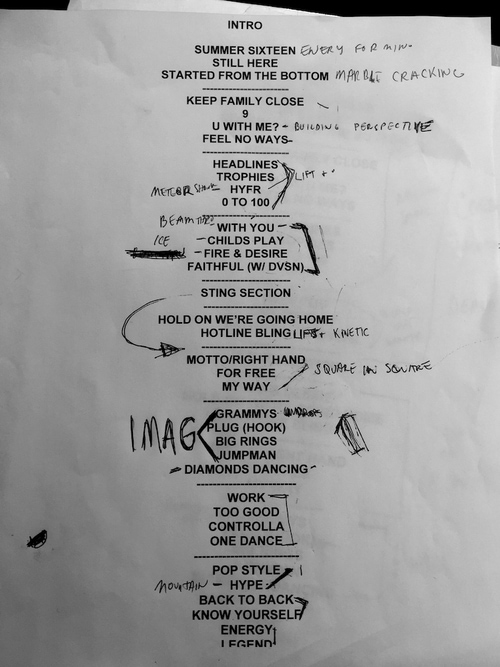 INTRO
SUMMER SIXTEEN
STILL HERE
STARTED FROM THE BOTTOM MARBLE CRACKING
KEEP FAMILY CLOSE
9
U WITH ME? - BUILDING PERSPECTIVE
FEEL NO WAYS-
HEADLINES
TROPHIES LIFT +
METEOR HYFR
0 TO 100
BEAM WITH YOU
ICE - CHILDS PLAY
- FIRE & DESIRE
FAITHFUL (W/ DVSN)
STING SECTION
HOLD ON WE'RE GOING HOME
HOTLINE BLING LIFT + KINETIC
MOTTO/RIGHT HAND
FOR FREE SQUARE IN SQUARE
MY WAY
GRAMMYS
IMAG PLUG (HOOK)
BIG RINGS
JUMPMAN
- DIAMONDS DANCING -
WORK
TOO GOOD
CONTROLLA
ONE DANCE
POP STYLE
MOUNTAIN - HYPE
BACK TO BACK
KNOW YOURSELF
ENERGY
LEGEND